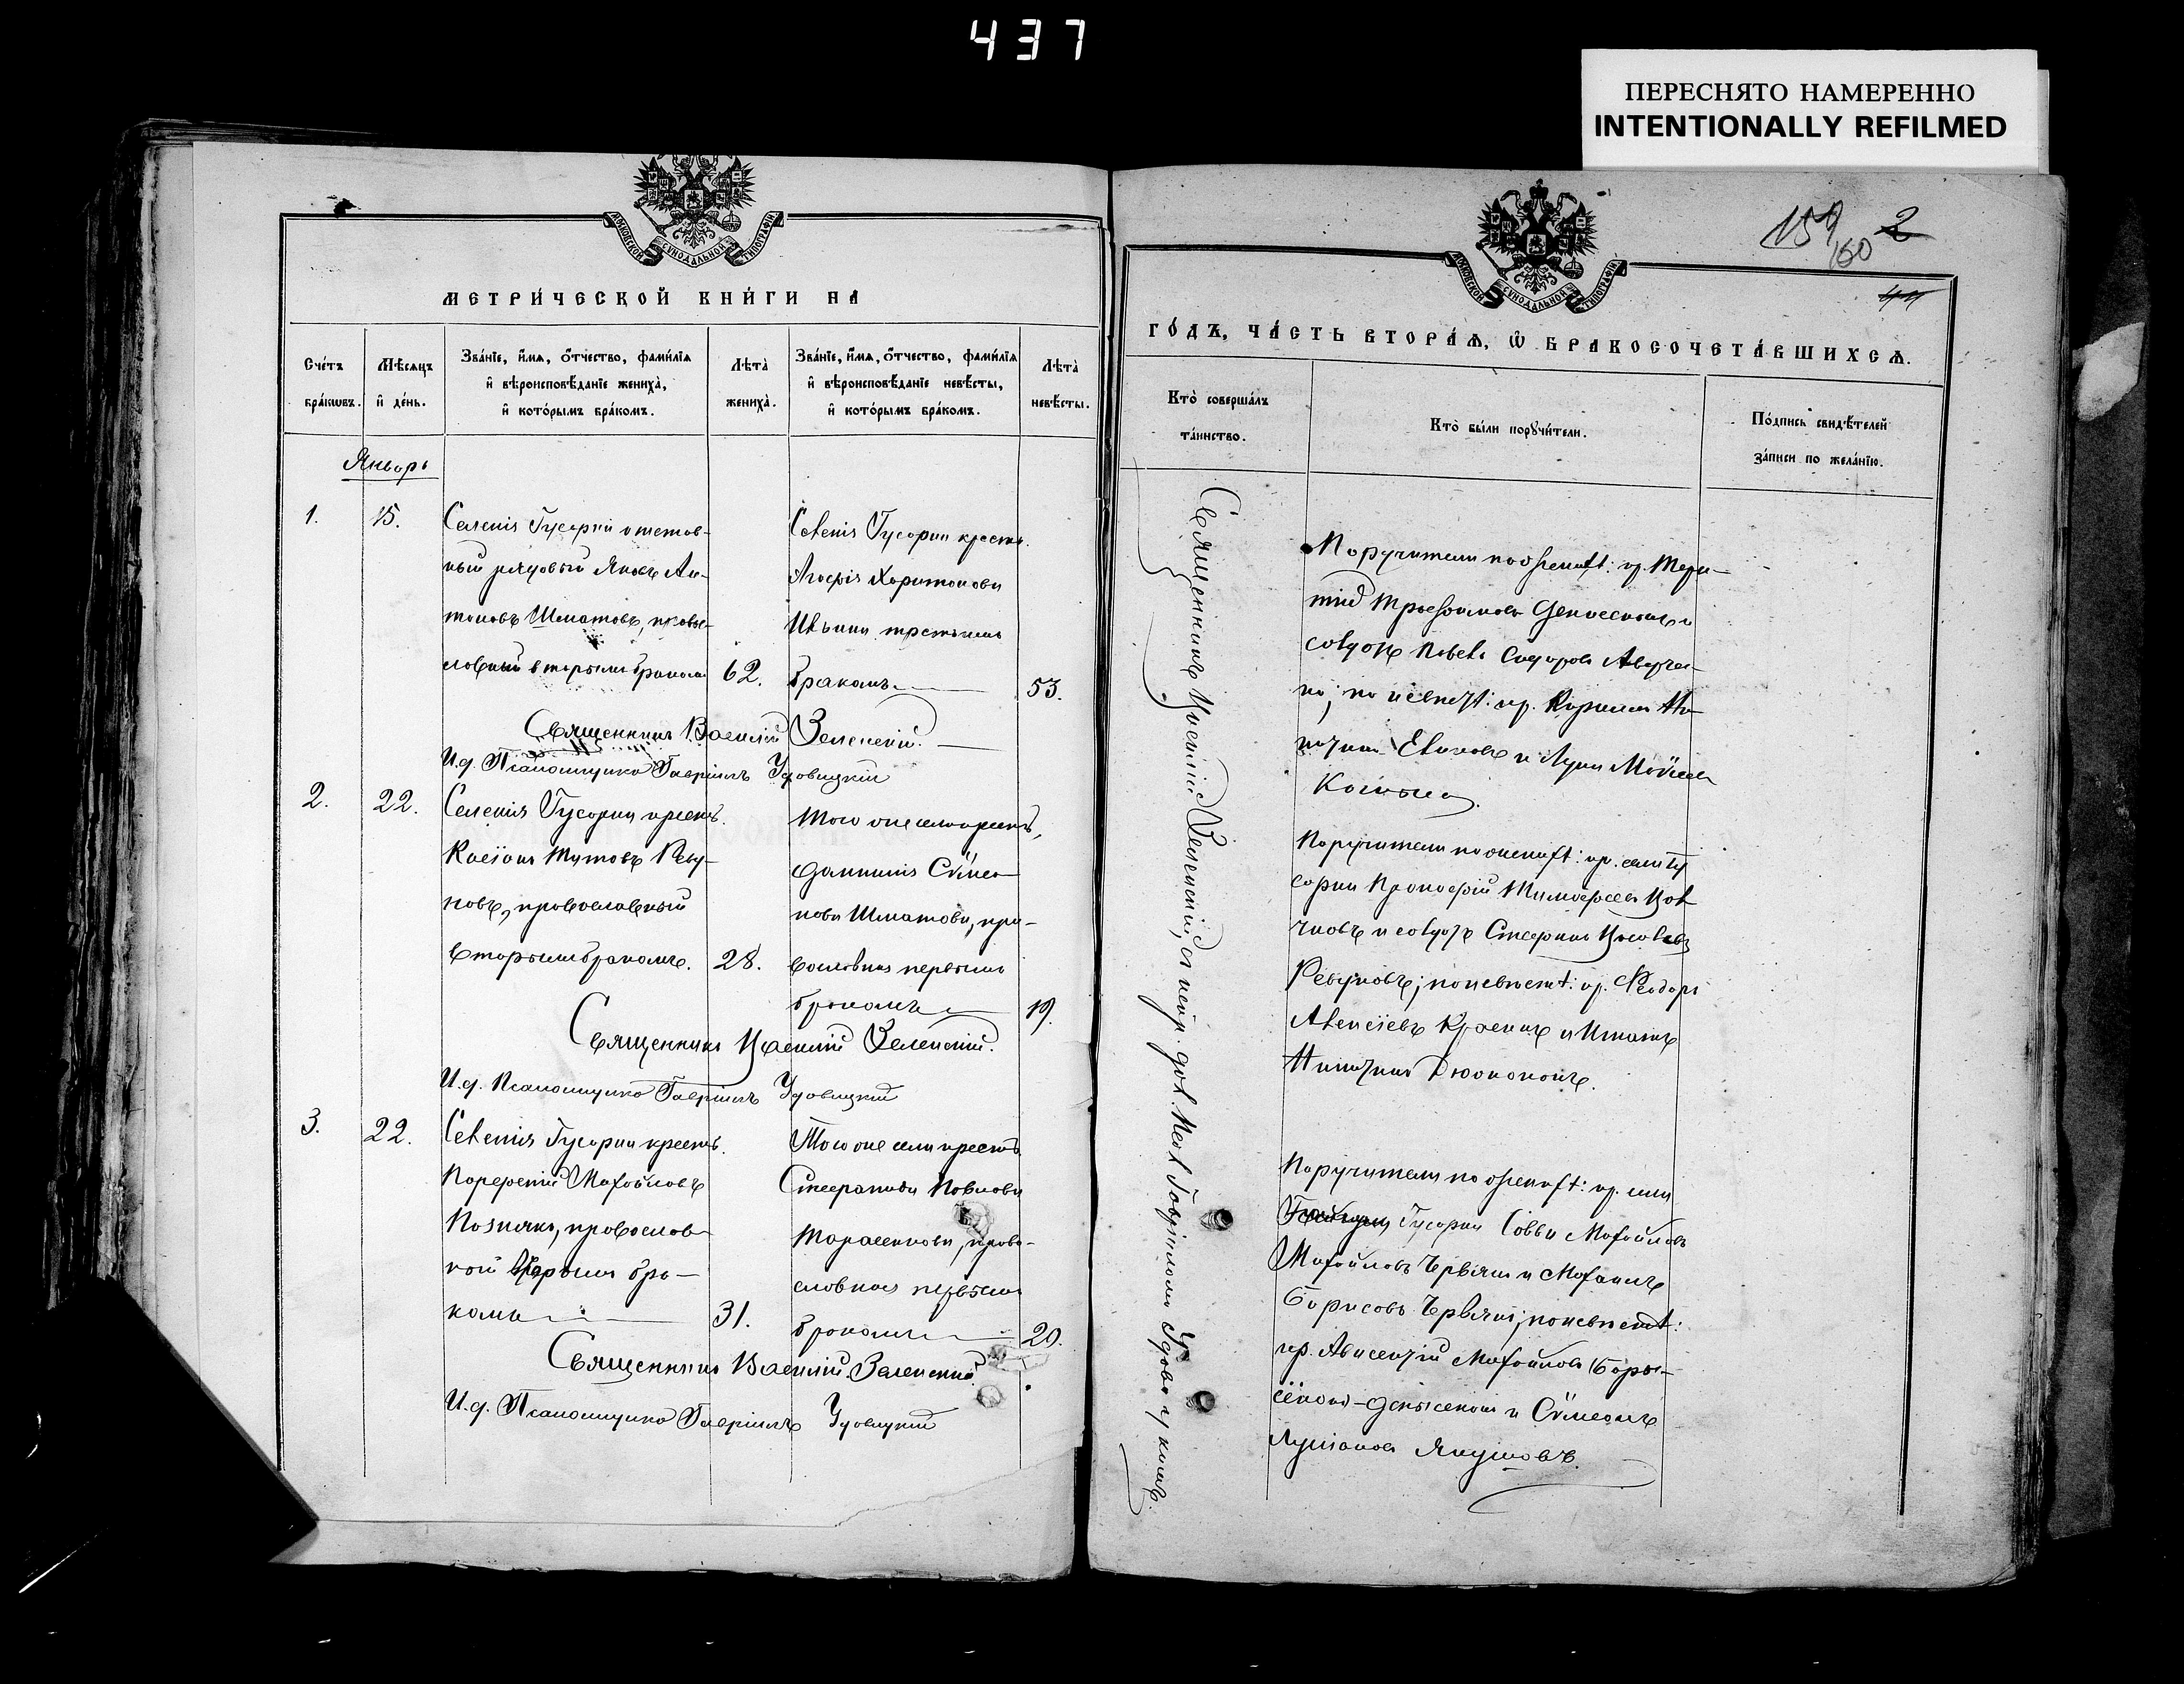 437
ПЕРЕСНЯТО НАМЕРЕННО
INTENTIONALLY REFILMED
МОСКОВСКОЙ СУНОДАЛЬНОЙ ТИПОГРАФІИ
МЕТРИ́ЧЕСКОЙ КНИ́ГИ НА
Сче́тъ бра́кωвъ.
Мѣ́сяцъ и҆ де́нь.
Зва́нїе, и҆́мя, ѻ҆́тчество, фами́лїя
и҆ вѣроисповѣ́данїе жениха̀,
и҆ кото́рымъ бра́комъ.
Лѣта̀ жениха̀.
Зва́нїе, и҆́мя, ѻ҆́тчество, фами́лїя
и҆ вѣроисповѣ́данїе невѣ́сты,
и҆ кото́рымъ бра́комъ.
Лѣта̀ невѣ́сты.
Январь
1.
15.
Селенія Гусарки отстав-
ный рядовый Яковъ Ан-
тоновъ Шматовъ, правос-
лавный вторымъ бракомъ
62.
Селенія Гусарки крестьн.
Агафія Харитонова
третьимъ
бракомъ.
53.
Священникъ Василій Зеленскій.
И. д. Псаломщика Гавріилъ Удовицкій
2.
22.
Селенія Гусарки крест.
Касіанъ Титовъ Реву-
новъ, православный
вторымъ бракомъ.
28.
Того же села крест.
Домникія Сѵмео-
нова Шматова, пра-
вославная первымъ
бракомъ
19.
Священникъ Василій Зеленскій.
И. д. Псаломщика Гавріилъ Удовицкій
3.
22.
Селенія Гусарки крест.
Парфеній Михайловъ
Позняко, православ-
ный вторымъ бра-
комъ
31.
Того же села крест.
Стефанида Павлова
Тарасенкова, право-
славная первымъ
бракомъ
20.
Священникъ Василій Зеленскій.
И. д. Псаломщика Гавріилъ Удовицкій
159
160
2
44
МОСКОВСКОЙ СУНОДАЛЬНОЙ ТИПОГРАФІИ
ГО́ДЪ, ЧА́СТЬ ВТОРА́Я, Ѽ БРАКОСОЧЕТА́ВШИХСЯ.
Кто̀ соверша́лъ
та́инство.
Кто̀ бы́ли порꙋчи́тели.
По́дпись свидѣ́телей
за́писи по жела́нїю.
Священникъ Василій Зеленскій, съ испр. дол. Псал. Гавріиломъ Удовицкимъ.
Поручители по женихѣ: кр.
Трофимовъ Денисенко и
солдатъ Павелъ Сидоровъ Аварчен-
ко; по невѣстѣ: кр. Кирилъ Ни-
китинъ и Лука Моѵсеевъ
Поручители по женихѣ: кр. села Гу-
сарки Прокофій Тимофеевъ
и солдатъ Стефанъ
Ревуновъ; по невѣстѣ: кр. Ѳеодоръ
Алексіевъ и Игнатъ
Никитинъ
Поручители по женихѣ: кр. села
Гусарки Савва Михайловъ
Михайловъ Червякъ и Михаилъ
Борисовъ Червякъ; по невѣстѣ:
кр. Авксентій Михайловъ Бары-
и Сѵмеонъ
Лукіановъ Якушовъ.